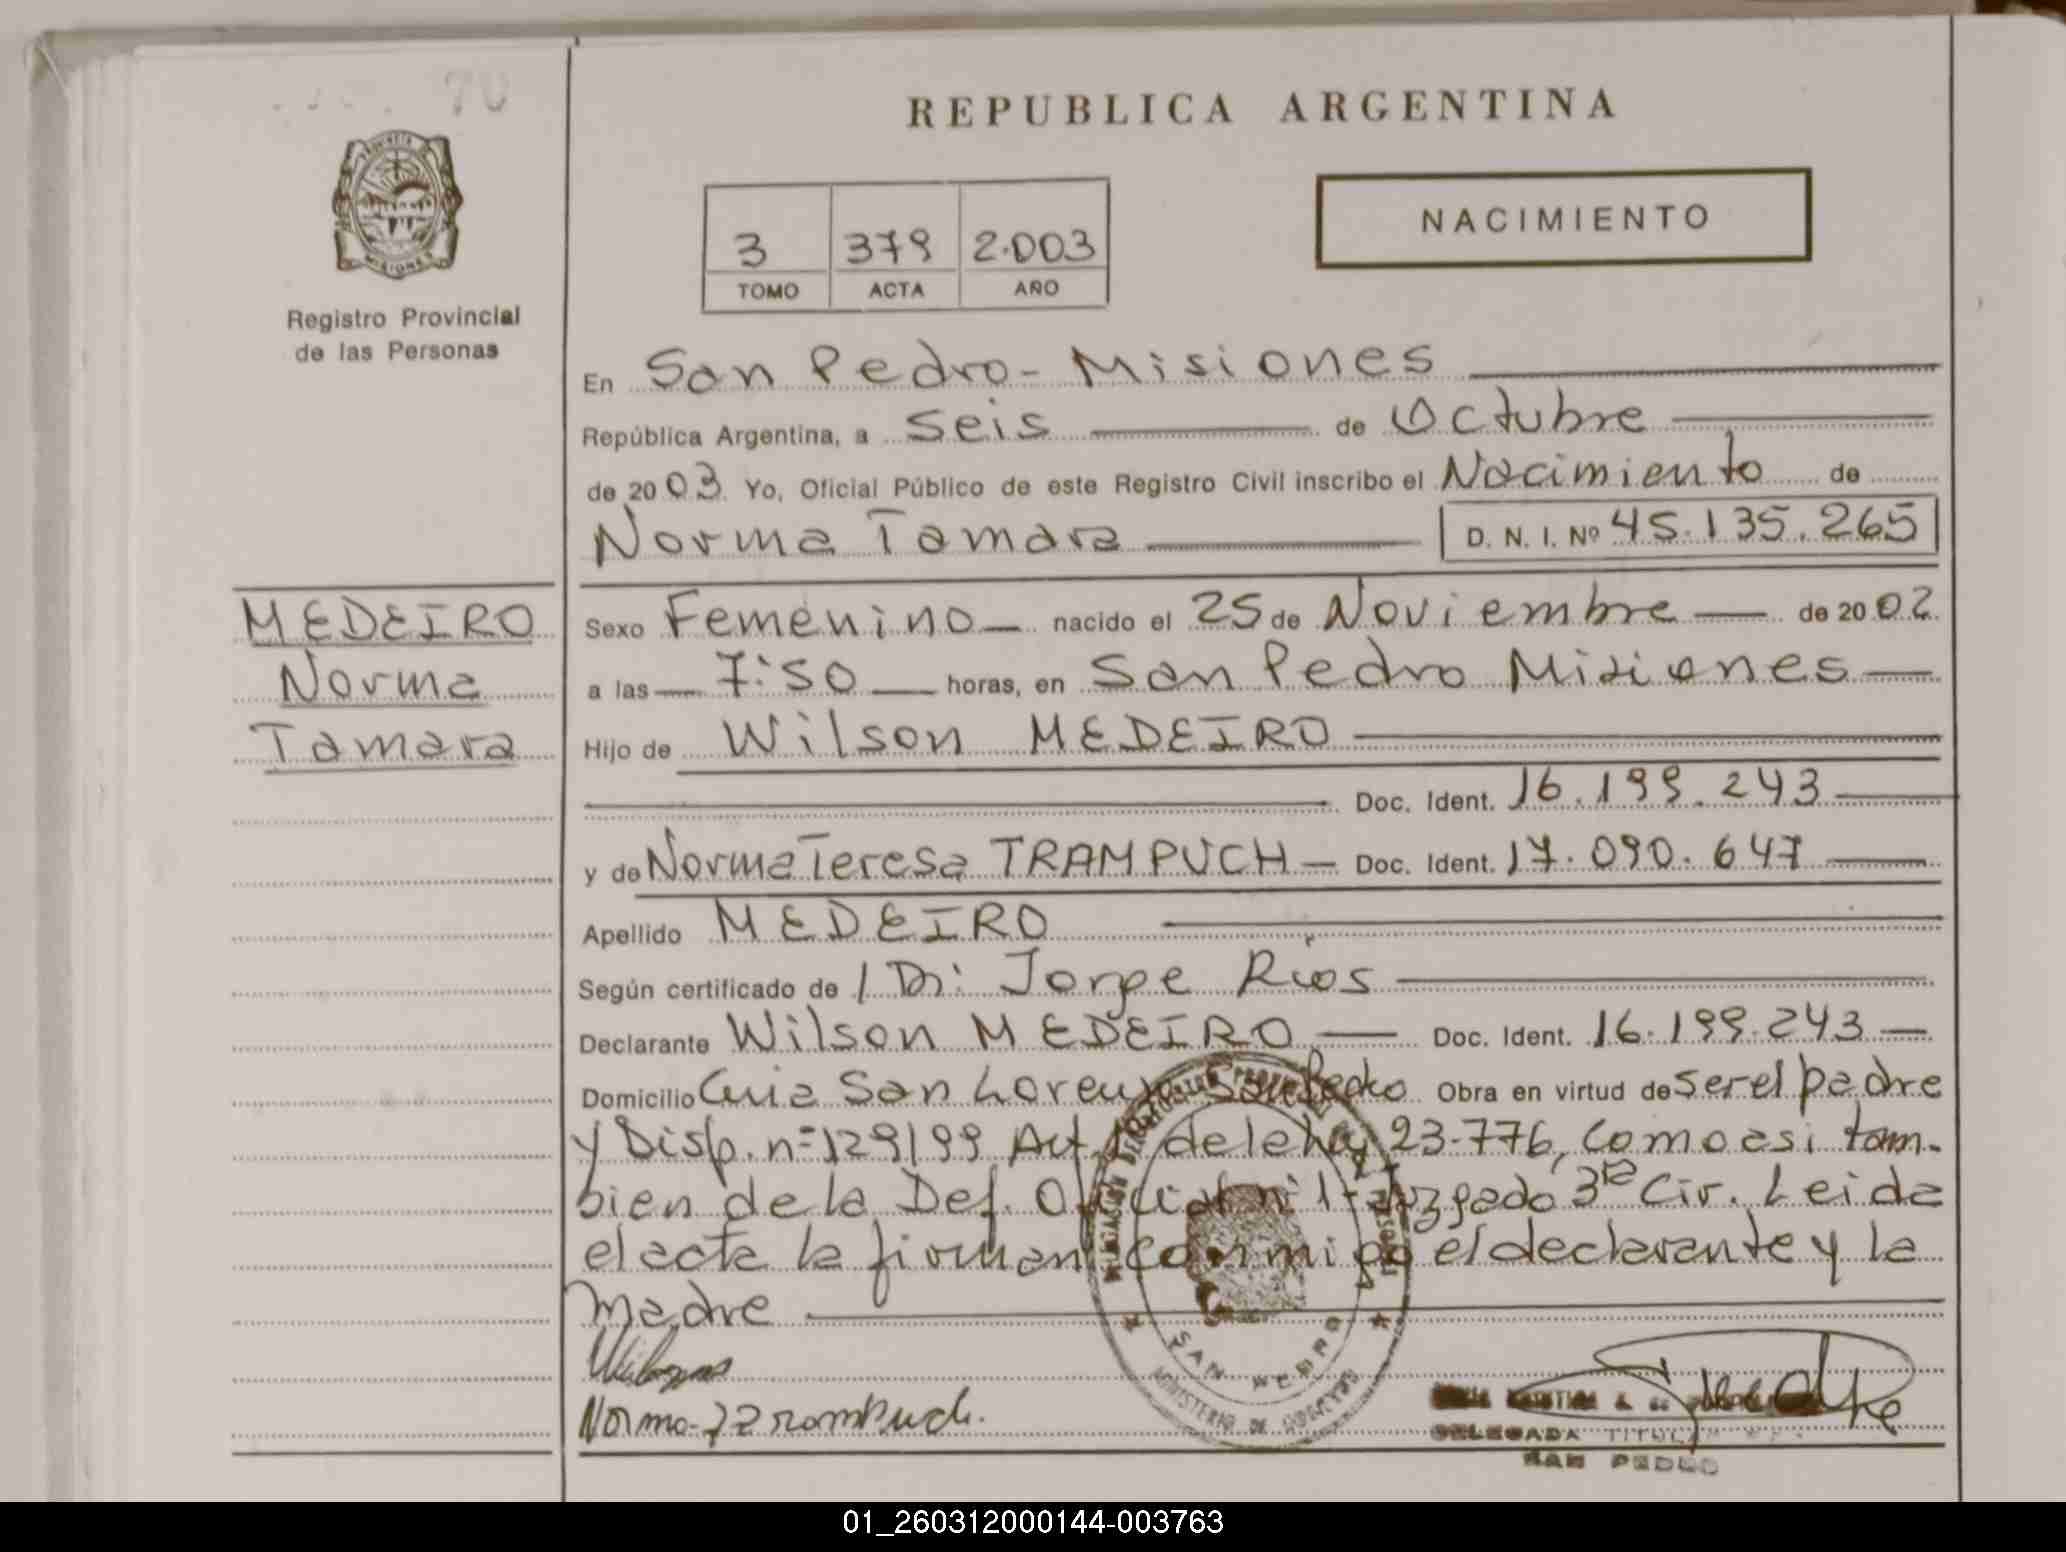 70
REPUBLICA ARGENTINA
NACIMIENTO
3 379 2.003
TOMO ACTA AÑO
MISIONES
Registro Provincial
de las Personas
En San Pedro - Misiones
República Argentina, a seis de Octubre
de 2003. Yo, Oficial Público de este Registro Civil inscribo el Nacimiento de
Norma Tamara D. N. I. Nº 45.135.265
MEDEIRO
Norma
Tamara
Sexo Femenino nacido el 25 de Noviembre de 2002
a las 7:50 horas, en San Pedro Misiones
Hijo de Wilson MEDEIRO
Doc. Ident. 16.199.243
y de Norma Teresa TRAMPUCH Doc. Ident. 17.090.647
Apellido MEDEIRO
Según certificado de / Dr: Jorge Rios
Declarante Wilson MEDEIRO Doc. Ident. 16.199.243
Domicilio San Lorenzo San Pedro Obra en virtud de ser el padre
y Disp. nº 129/99 Art. de le ley 23.776, como asi tam-
bien de la Def. Oficial nº 1 - Juzgado 3ra Cir. Leida
el acta la firman conmigo el declarante y la
madre
Norma T Trampuch.
SAN PEDRO
MINISTERIO DE GOBIERNO
DELEGADA TITULAR
SAN PEDRO
01_260312000144-003763